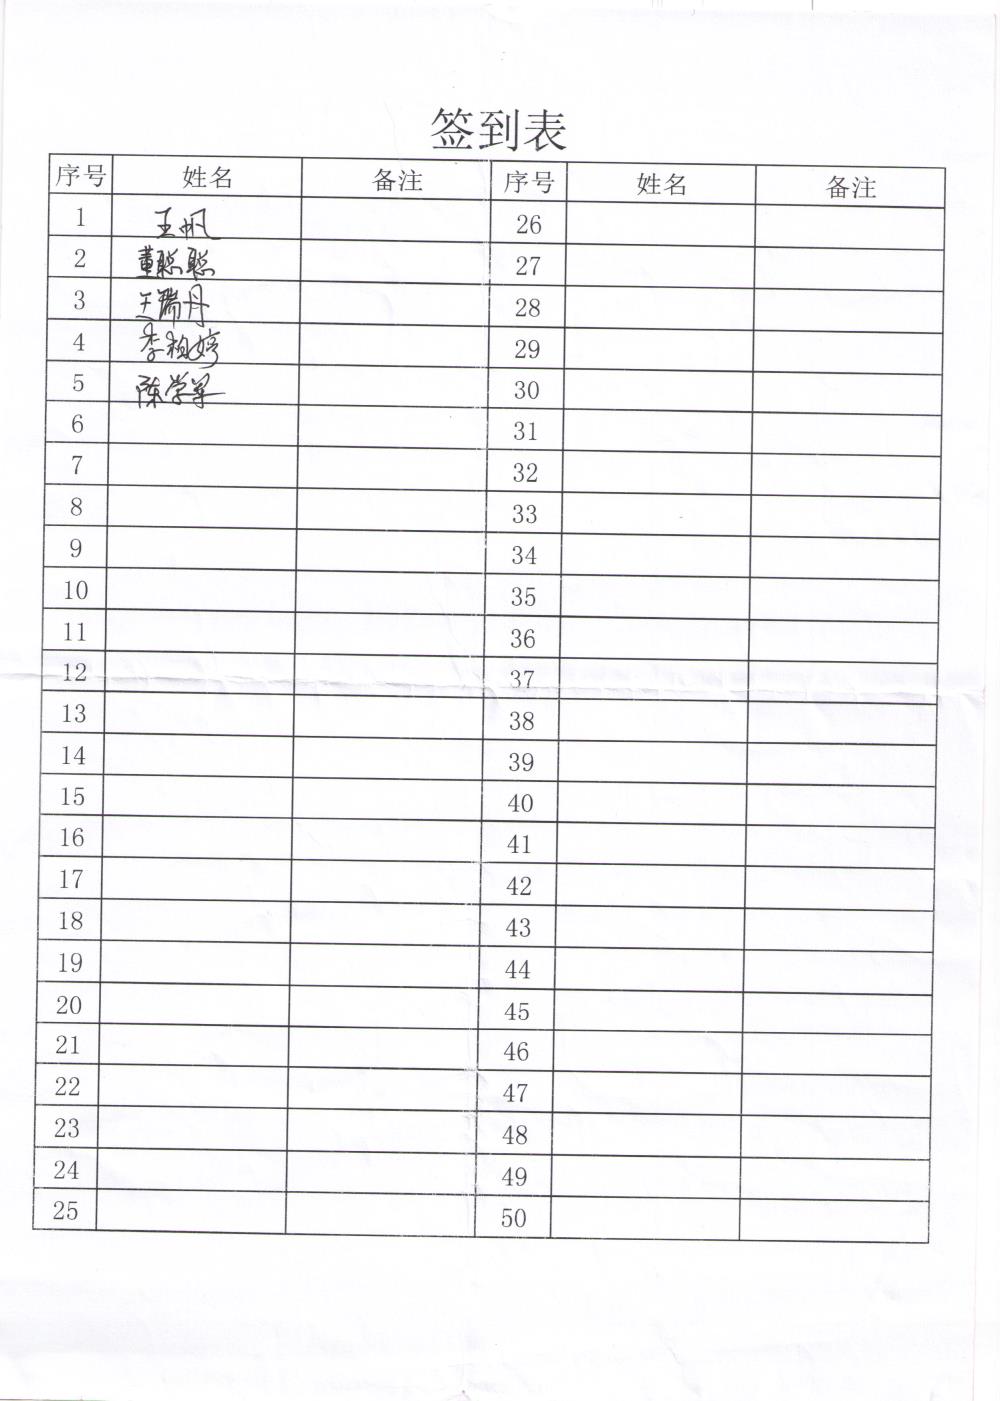 签到表
序号 姓名 备注 序号 姓名 备注
1 王帆 26
2 董聪聪 27
3 王瑞丹 28
4 李柏婷 29
5 陈学军 30
6 31
7 32
8 33
9 34
10 35
11 36
12 37
13 38
14 39
15 40
16 41
17 42
18 43
19 44
20 45
21 46
22 47
23 48
24 49
25 50